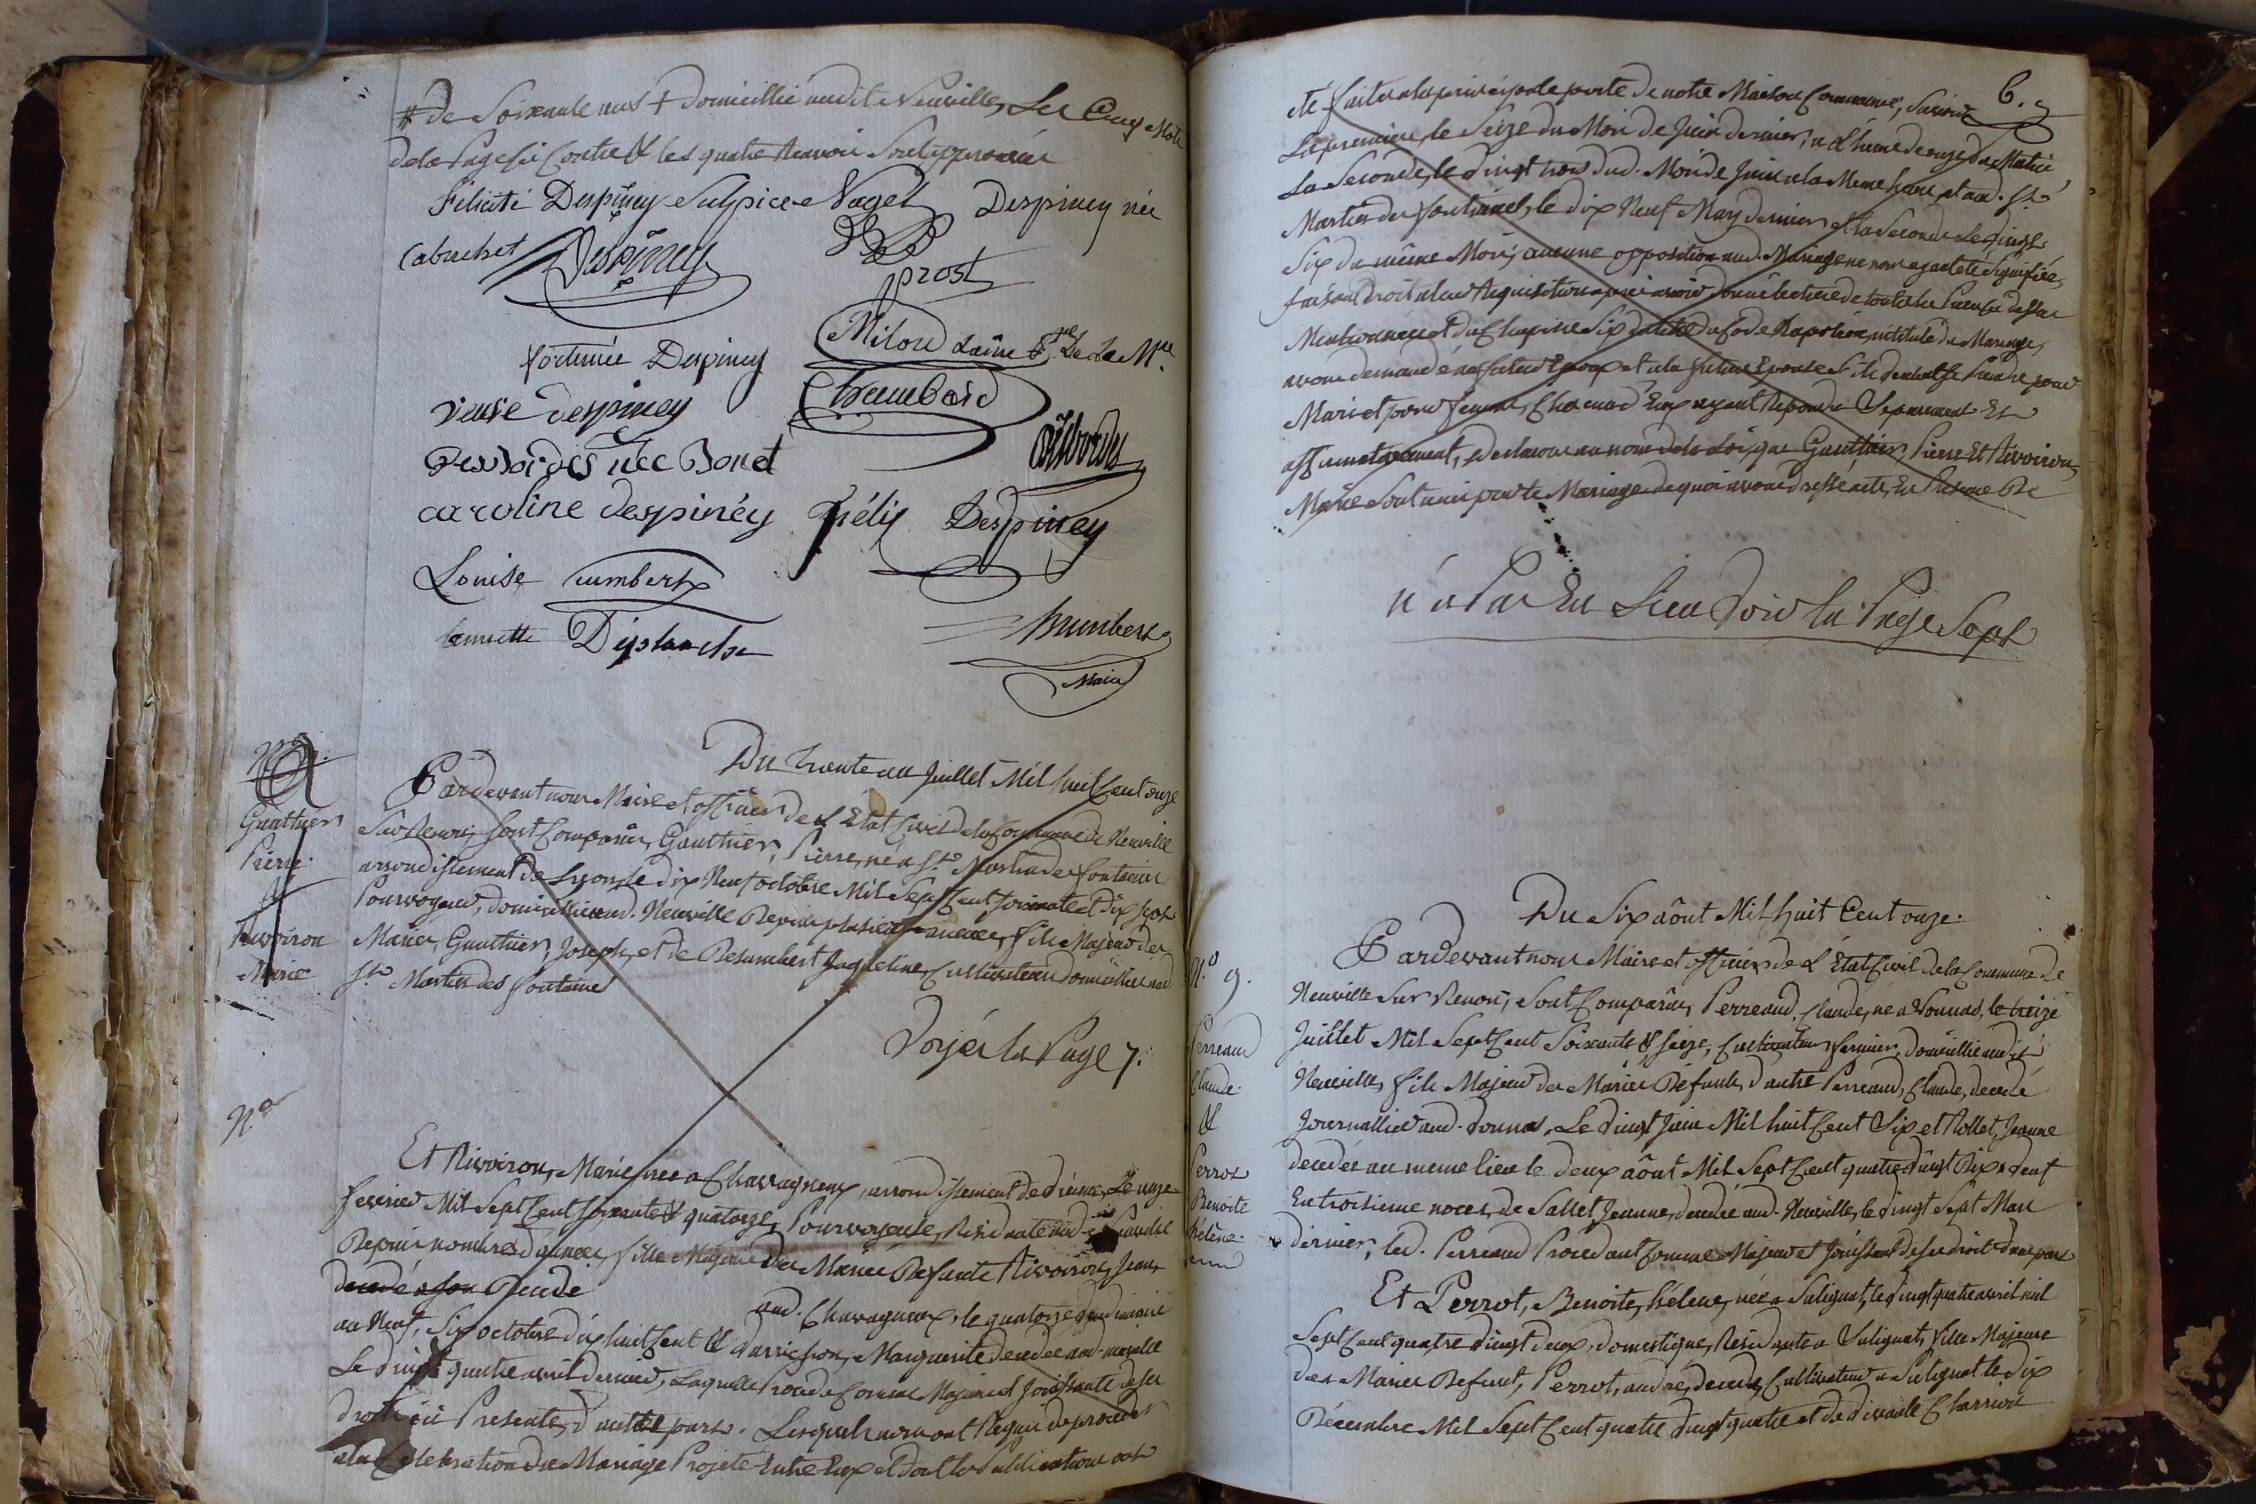 # de Soixante ans + domicillié audit Neuville, Les Cinq Mots
de la Page ci Contre & les quatre Renvois Sont approuvés
Félicité Despiney Sulpice Nagel Despiney née
Cabuchet Despiney
prost
Milon Lainé
fortunée Despiney
Chambard
veuve despiney
Desbordes née Bonet
Desbordes
caroline despiney félix Despiney
Louise humbert
humbert
Maire
Du trente un Juillet Mil huit Cent onze
N.o
Gauthier
Pierre
&
Rivoiron
Marie
Pardevant nous Maire et officier de L'État Civil de la Commune de Neuville
Sur Renon, sont Comparus, Gauthier, Pierre, né a St. Martin de fontaine
arrondissement de Lyon, le dix Neuf octobre Mil Sept Cent soixante et dix sept
Pourvoyeur, domicillié aud. Neuville Depuis plusieurs années, fils Majeur des
Mariés, Gauthier, Joseph, et de Jaqueline, Cultivateur domicilliés aud.
St. Martin des fontaine
Voyés la Page 7.
N.o
Et Rivoiron, Marie née a Chavagneux, arrondissement de Vienne, Le onze
fevrier Mil Sept Cent soixante & quatorze, Pourvoyeuse, Residante aud. Neuville
Depuis nombre d'années, fille Majeure des Mariés Defunts Rivoiron, Jean
decedé
aud. Chavagneux, le quatorze vendemiaire
an Neuf, Six octobre dix huit Cent & Marguerite decedée aud.
Le vingt quatre avril dernier, Laquelle Procede Comme Majeure et Joüissante de ses
droits ici Presente, d'autre part. Lesquels nous ont Requis de proceder
a la Celebration du Mariage Projeté Entre Eux et dont les Publications ont
6.
été faites a la principale porte de notre Maison Commune, Savoir
La premiere, le Seize du Mois de Juin dernier, a L'heure de onze du Matin
La Seconde, le vingt trois dud. Mois de Juin a la Meme heure et aud. St.
Martin des fontaines, le dix Neuf May dernier et la Seconde Le vingt
Six du même Mois, aucune opposition aud. Mariage ne nous ayant été Signifiée,
faisant droit a leur Requisition après avoir donné lecture de toutes les Pieces cy dessus
Mentionnées et du Chapitre Six du titre du Code Napoléon, intitulé du Mariage,
avons demandé au futur Epoux et a la future Epouse S'ils veulent se Prendre pour
Mari et pour femme, Chacun d'Eux ayant Repondu Separement Et
affirmativement, declarons au nom de la Loi, que Gauthier, Pierre Et Rivoiron,
Marie Sont unis par le Mariage de quoi avons dressé acte, En Presence De
n'a Pas Eu Lieu Voir la Page Sept
Du Six août Mil huit Cent onze.
N.o 9.
Perreaud
Claude
&
Perrot
Benoite
hélène
Pardevant nous Maire et officier de L'État Civil de la Commune de
Neuville Sur Renon, Sont Comparus, Perreaud, Claude, né a Vonnas, le treize
Juillet Mil Sept Cent Soixante & Seize, Cultivateur fermier, domicillié audit
Neuville, fils Majeur des Mariés Défunts, d'autre Perreaud, Claude, decedé
Journallier aud. Vonnas, Le vingt Juin Mil huit Cent Six et Rollet, Jeanne
decedée au meme lieu le deux août Mil Sept Cent quatre vingt Dix Neuf
En troisieme noces, de Sallet Jeanne, decedée aud. Neuville, le vingt Sept Mars
dernier, led. Perreaud Procedant Comme Majeur et Joüissant de ses droits d'une part
Et Perrot, Benoite, hélene, née a Sulignat, le vingt quatre avril mil
Sept Cent quatre vingt deux, domestique, Residante a Sulignat, fille Majeure
des Mariés Defunts, Perrot, andré, decedé, Cultivateur a Sulignat le dix
Décembre Mil Sept Cent quatre vingt quatre et de vivante Charrion